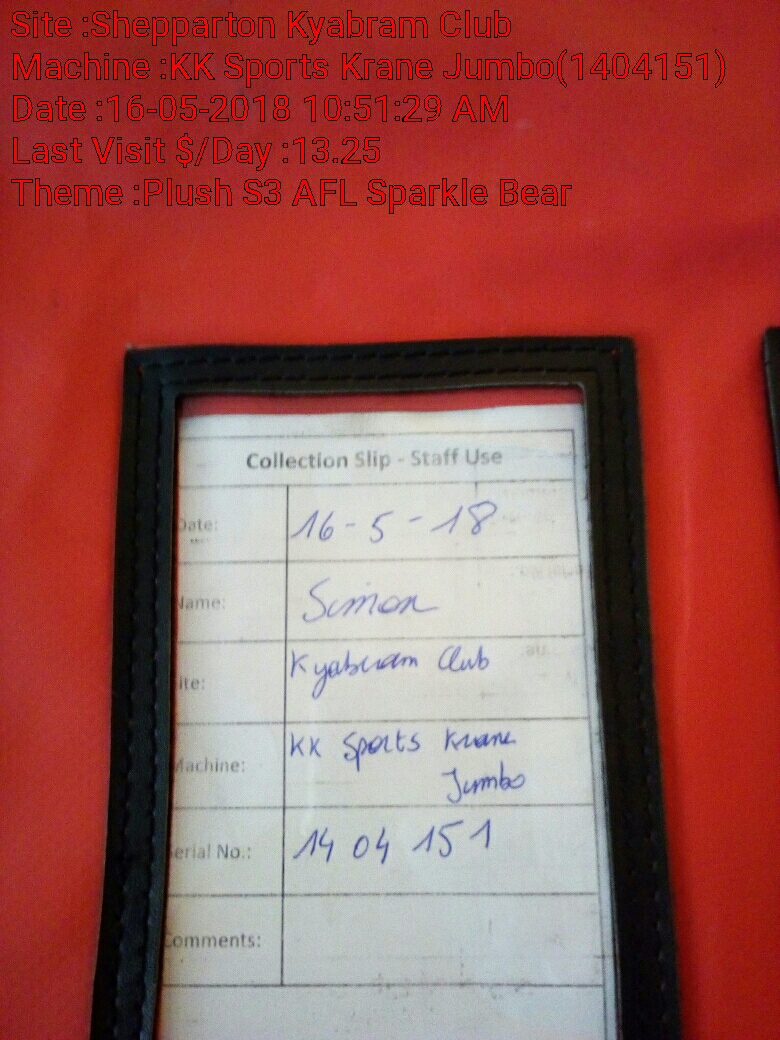 Site :Shepparton Kyabram Club
Machine :KK Sports Krane Jumbo(1404151)
Date :16-05-2018 10:51:29 AM
Last Visit $/Day :13.25
Theme :Plush S3 AFL Sparkle Bear
Collection Slip - Staff Use
Date: 16-5-18
Name: Simon
ite: Kyabram Club
Machine: KK Sports Krane
Jumbo
Serial No.: 14 04 151
Comments: